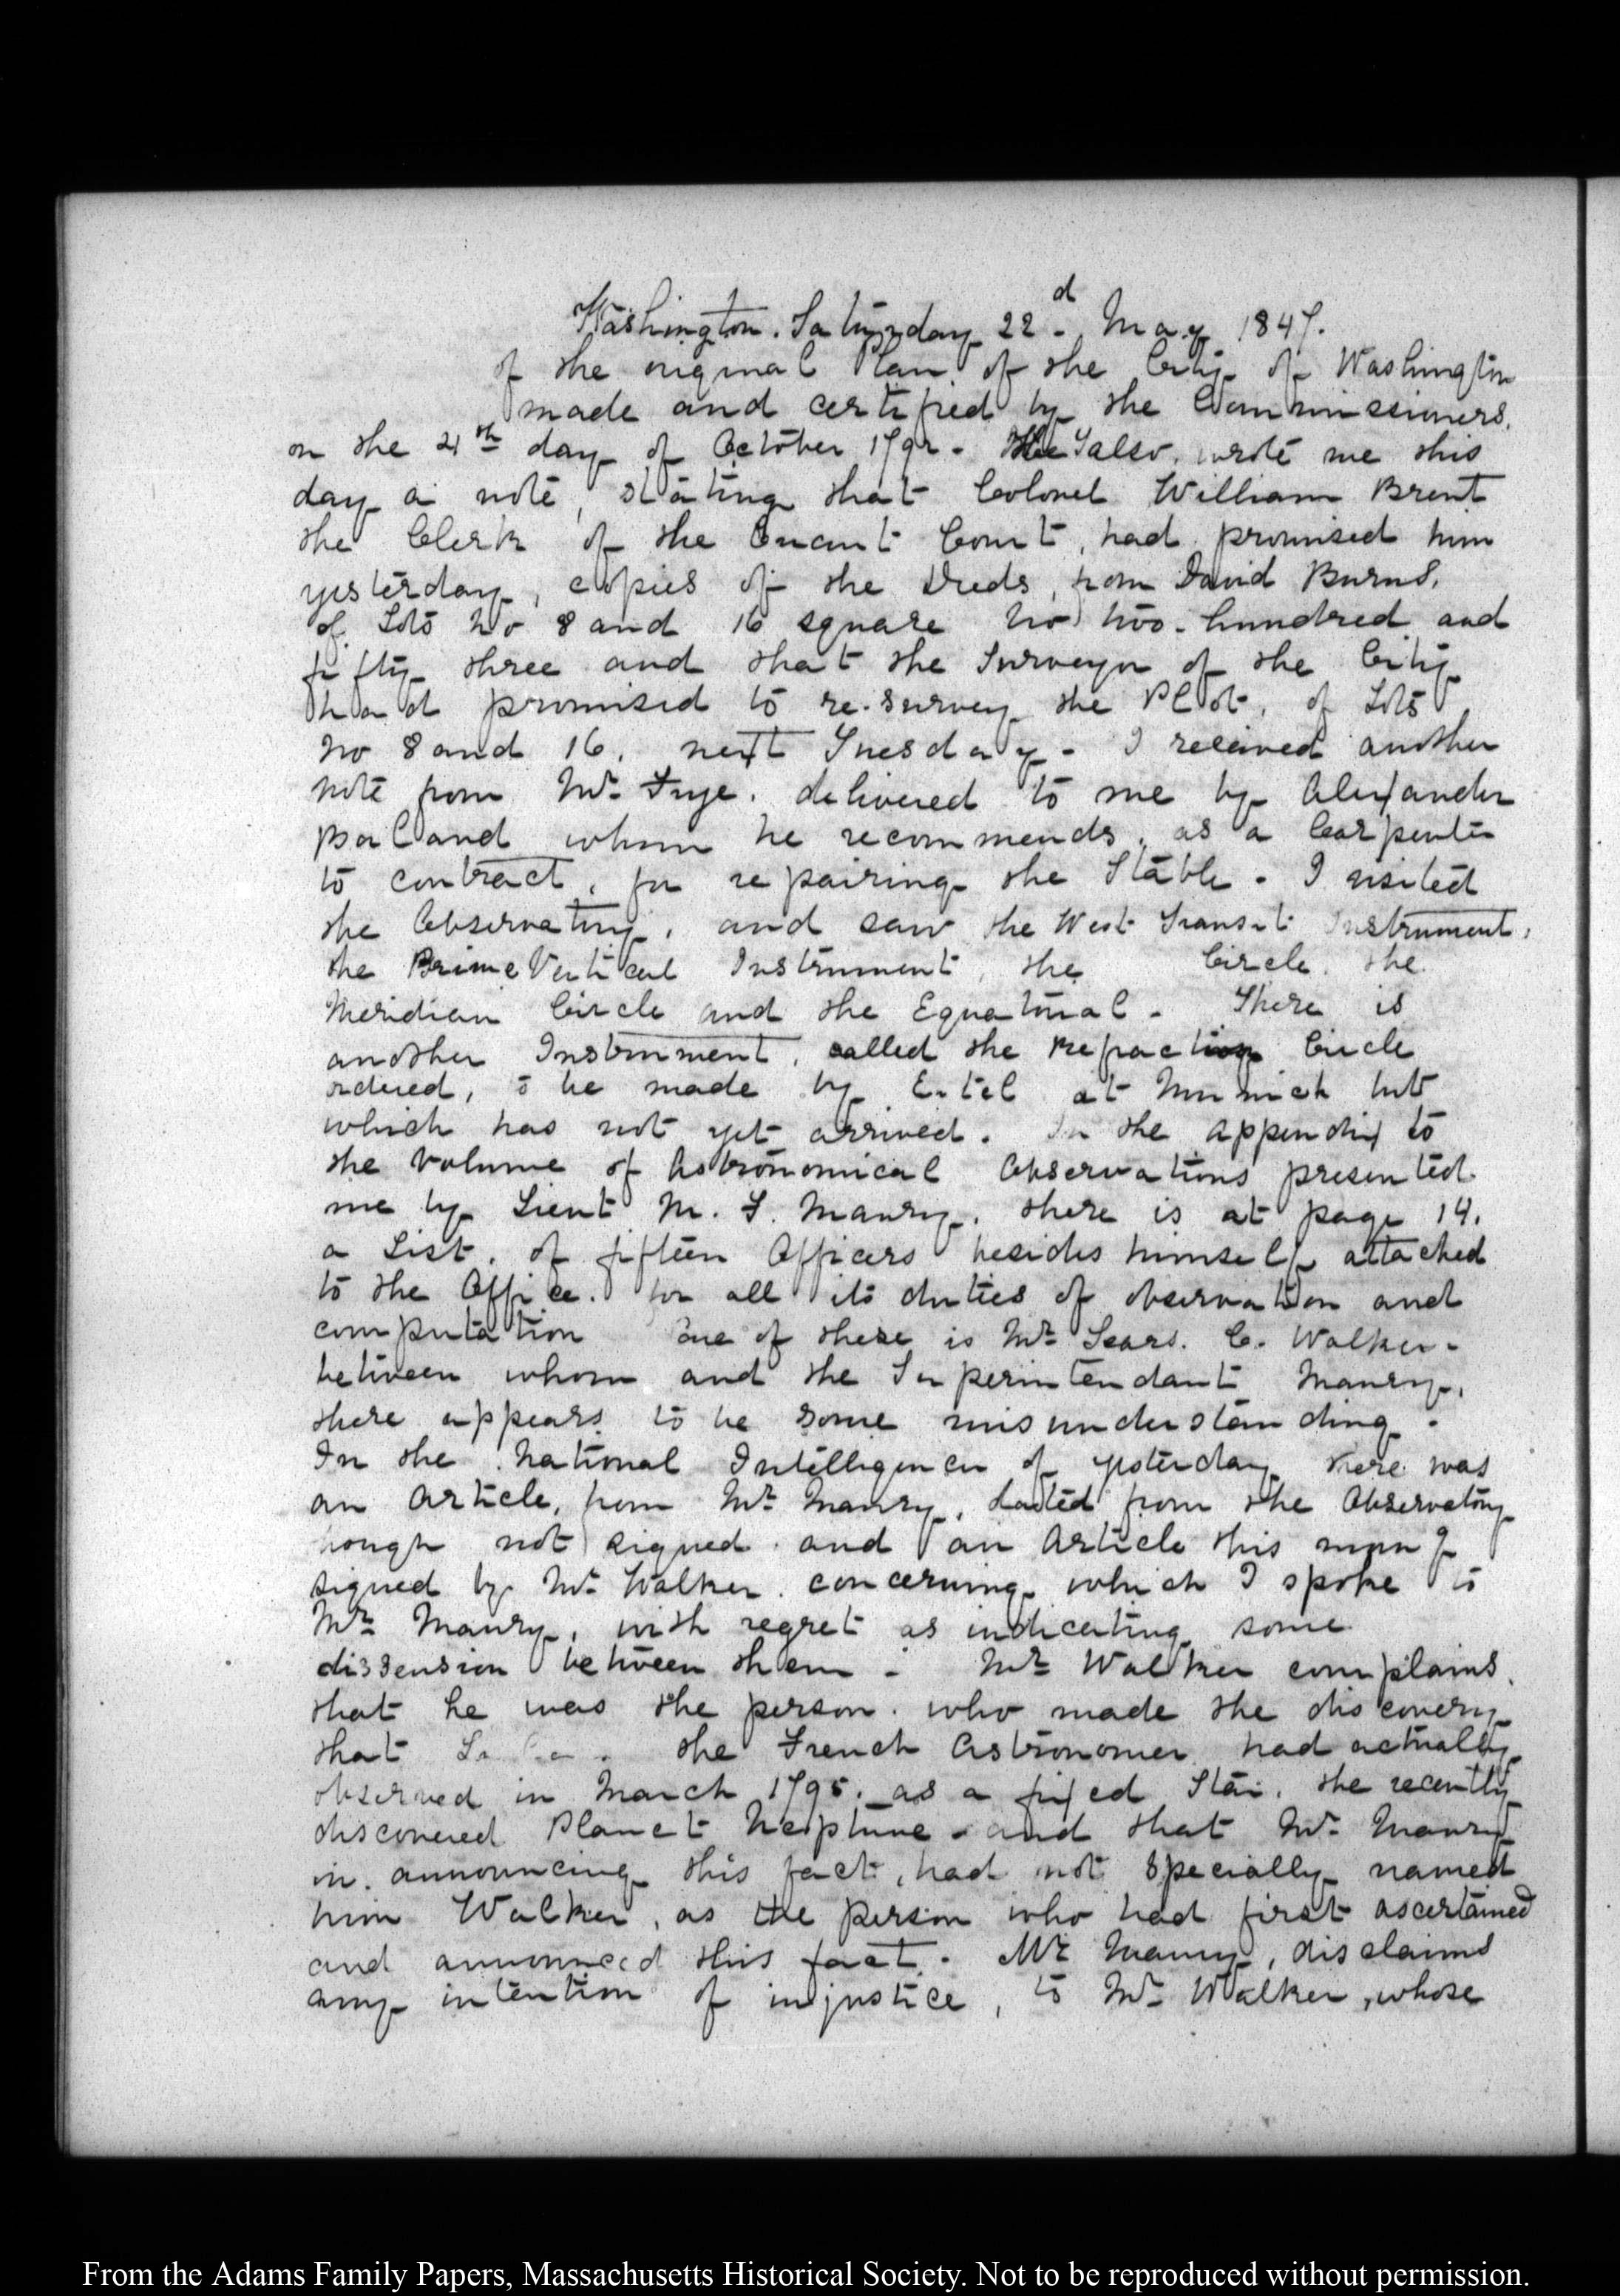 Washington. Saturday 22d. May 1847.
of the original Plan of the City of Washington
made and certified by the Commissioners.
on the 4th day of October 1792. He also wrote me this
day a note, stating that Colonel William Brent
the Clerk of the Circuit Court, had promised him
yesterday, copies of the Deeds, from David Burns,
of Lots No 8 and 16 square No two-hundred and
fifty three and that the Surveyor of the City
had promised to re-survey the Plot, of Lots
No 8 and 16, next Tuesday - I received another
note from Mr. Frye, delivered to me by Alexander
Borland whom he recommends, as a Carpenter
to contract, for repairing the Stable - I visited
the Observatory, and saw the West Transit Instrument,
the Prime Vertical Instrument, the Circle, the
Meridian Circle and the Equatorial - There is
another Instrument, called the Refraction Circle
ordered, to be made by Ertel at Munich but
which has not yet arrived. In the Appendix to
the Volume of Astronomical Observations presented
me by Lieut M. F. Maury, there is at page 14.
a List, of fifteen Officers besides himself attached
to the Office. for all its duties of observation and
computation one of these is Mr. Sears. C. Walker -
between whom and the Superintendant Maury,
there appears to be some misunderstanding -
In the National Intelligencer of yesterday there was
an Article, from Mr. Maury, dated from the Observatory
though not signed and an Article this morng
signed by Mr. Walker concerning which I spoke to
Mr. Maury, with regret as indicating some
dissension between them - Mr. Walker complains
that he was the person who made the discovery
that the French Astronomer had actually
observed in March 1795. as a fixed Star, the recently
discovered Planet Neptune - and that Mr. Maury
in announcing this fact, had not specially named
him Walker, as the person who had first ascertained
and announced this fact. Mr. Maury, disclaims
any intention of injustice, to Mr. Walker, whose
From the Adams Family Papers, Massachusetts Historical Society. Not to be reproduced without permission.